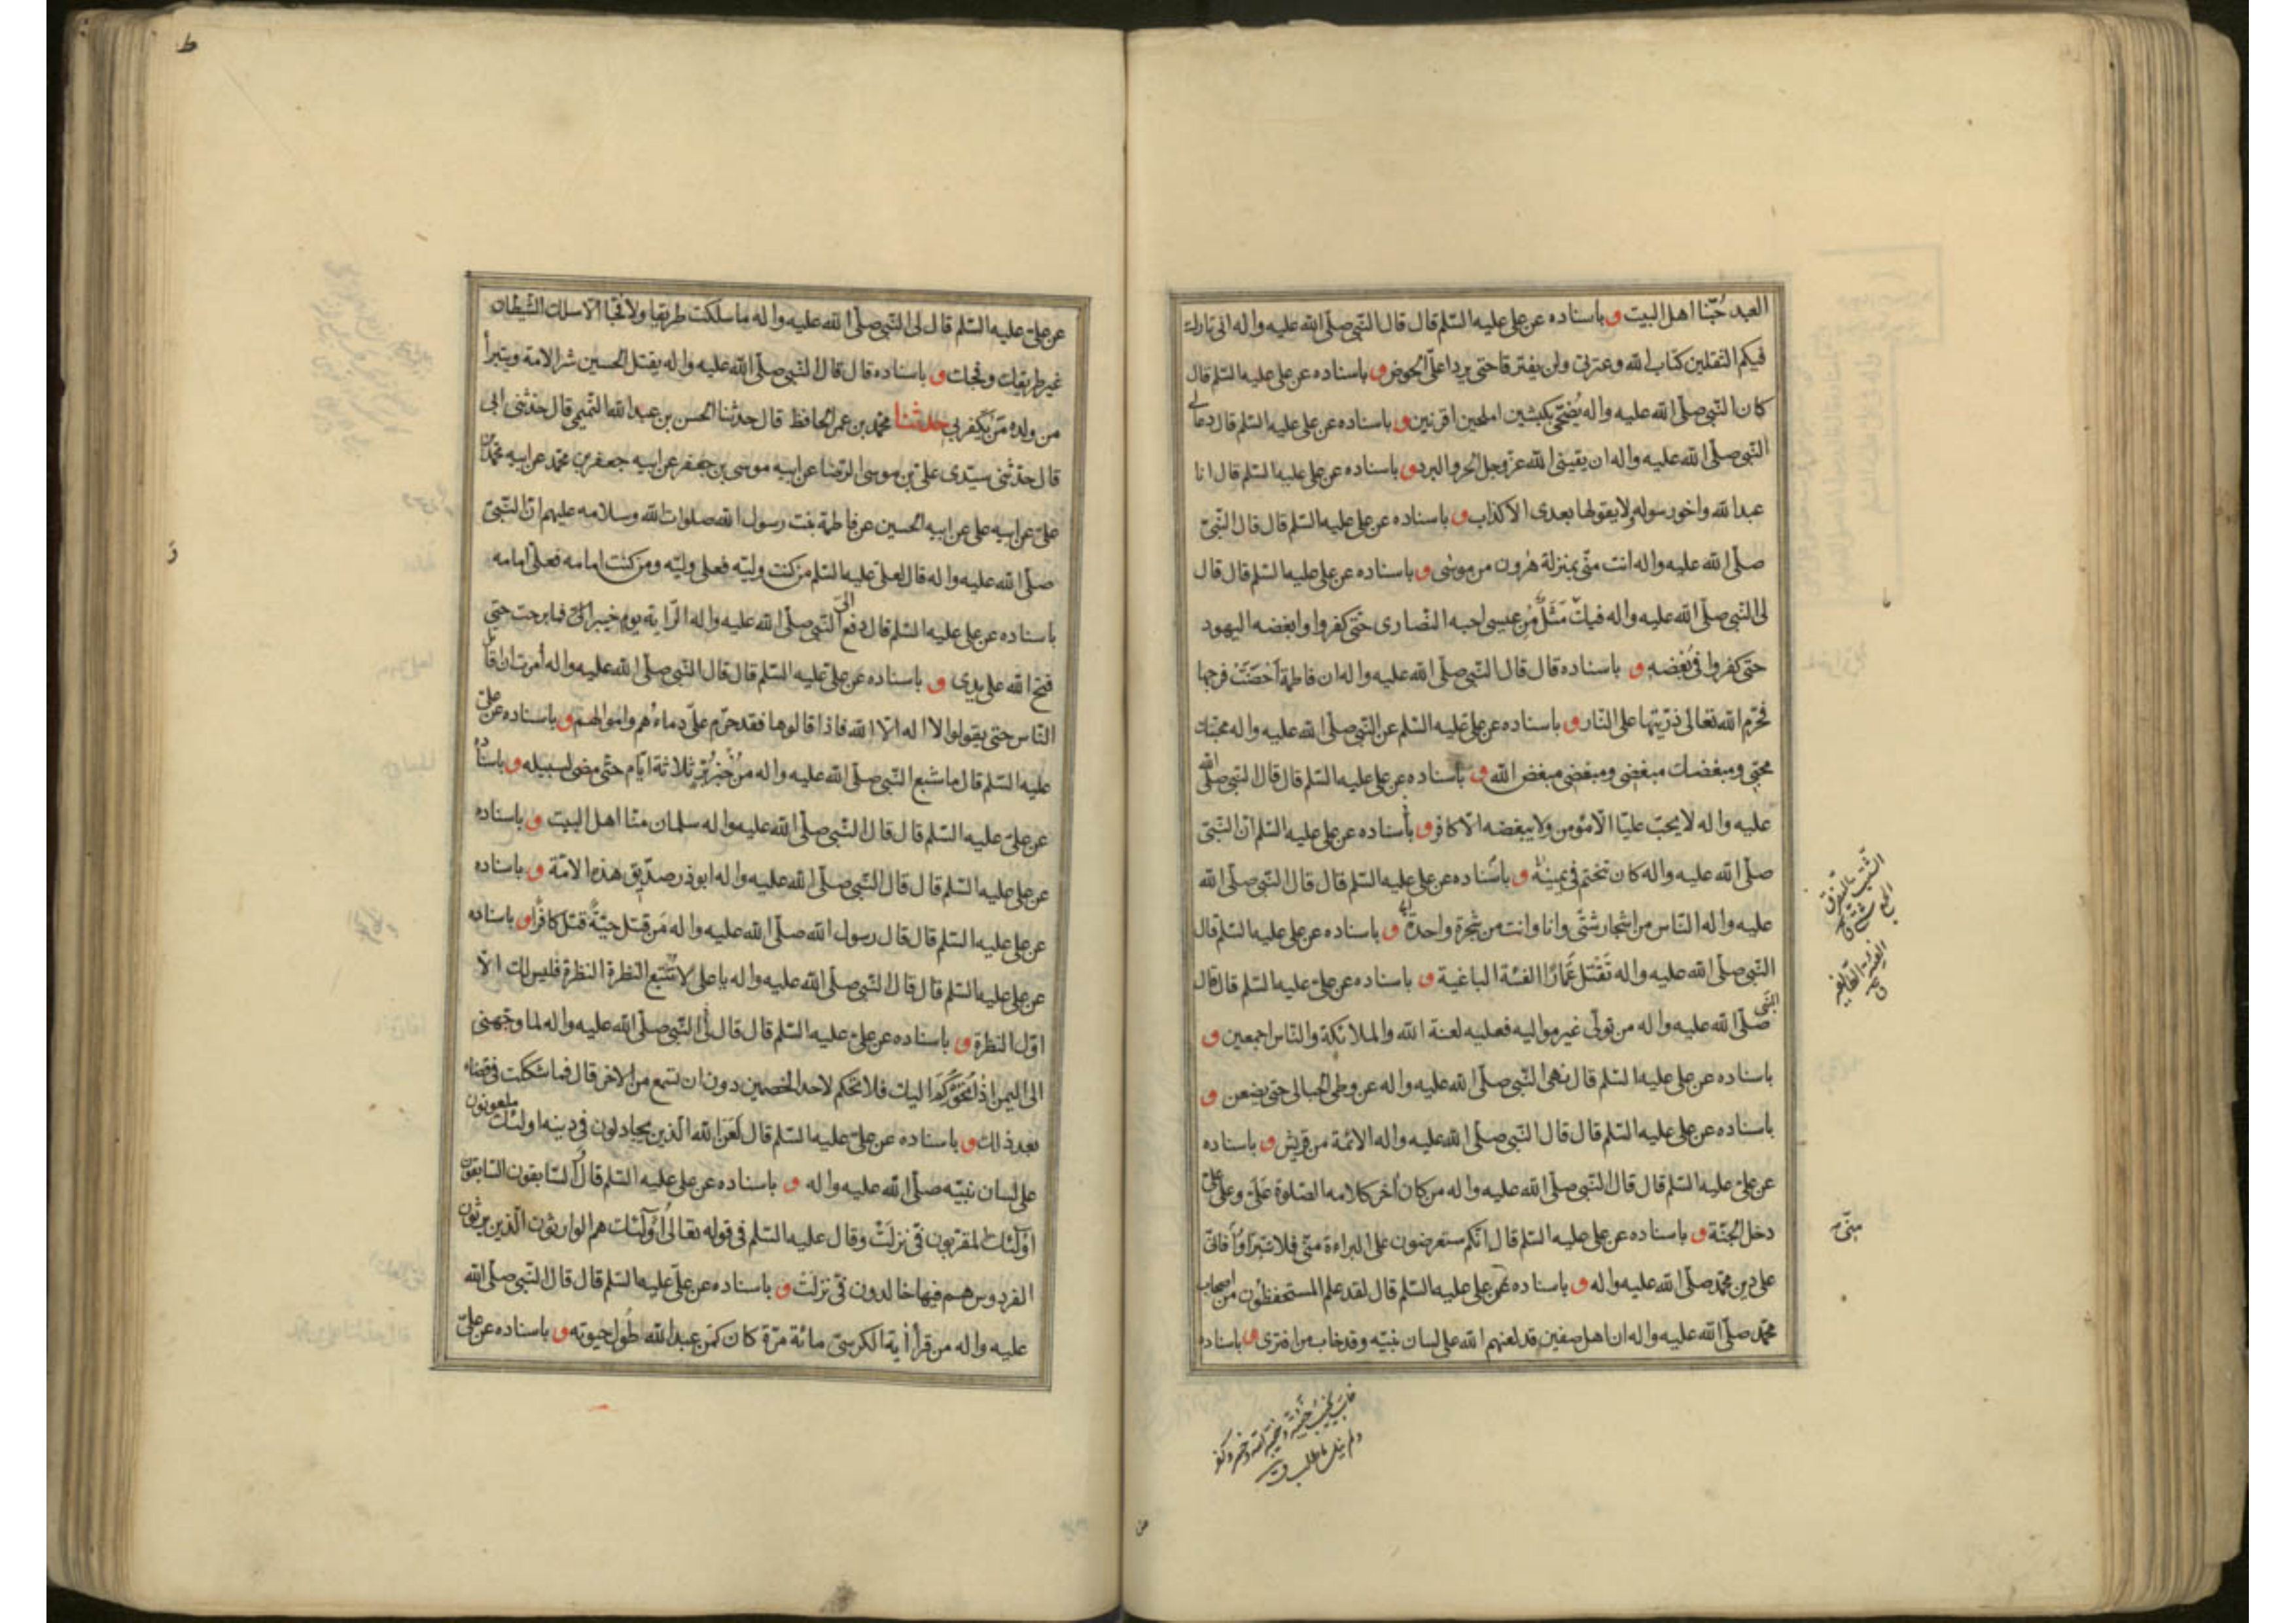 العبد حُبّنا اهل البيت و باسناده عن علی علیه السّلم قال قال النّبی صلّی الله علیه واله انی تارك
فیکم الثقلین کتاب الله و عترتی ولن یفترقا حتی یردا علیّ الحوض و باسناده عن علی علیه السّلم قال
کان النّبی صلّی الله علیه واله یُضحّی بکبشین املحین اقرنین و باسناده عن علی علیه السّلم قال دعا لی
النّبی صلّی الله علیه واله ان یقینی الله عزّ وجل الحر والبرد و باسناده عن علی علیه السّلم قال انا
عبد الله واخو رسوله ولا یقولها بعدی الا کذاب و باسناده عن علی علیه السّلم قال قال النّبیّ
صلّی الله علیه واله انت منّی بمنزلة هٰرون من موسٰی و باسناده عن علی علیه السّلم قال قال
لی النّبی صلّی الله علیه واله فیك مَثَلٌ مِن عیسی احبه النّصاری حَتّی کفروا وابغضه الیهود
حتی کفروا فی بُغضه و باسناده قال قال النّبی صلّی الله علیه واله ان فاطمة اَحْصَنَتْ فرجها
فحرّم الله تعالی ذرّیتها علی النّار و باسناده عن علی علیه السّلم عن النّبی صلّی الله علیه واله محبّك
محبّی ومبغضك مبغضی ومبغضی مبغض الله و باسناده عن علی علیه السّلم قال قال النّبی صلّی الله
علیه واله لا یحبّ علیّا الّا مؤمن ولا یبغضه الّا کافر و باسناده عن علی علیه السّلم انّ النّبیّ
صلّی الله علیه واله کان تختم فی یمینه و باسناده عن علی علیه السّلم قال قال النّبی صلّی الله
علیه واله النّاس من اشجار شتّی وانا وانت من شجرة واحدة و باسناده عن علی علیه السّلم قال
النّبی صلّی الله علیه واله تَقْتل عَمّارًا الفئة الباغیة و باسناده عن علیّ علیه السّلم قال قال النّبی
صلّی الله علیه واله من تولّی غیر موالیه فعلیه لعنة الله والملائکة والنّاس اجمعین و
باسناده عن علی علیه السّلم قال نهی النّبی صلّی الله علیه واله عن وطی الحبالی حتی یضعن و
باسناده عن علی علیه السّلم قال قال النّبی صلّی الله علیه واله الائمّة من قریش و باسناده
عن علیّ علیه السّلم قال قال النّبی صلّی الله علیه واله من کان اٰخر کلامه الصّلوة عَلَیّ وعلی علیّ
دخل الجنّة و باسناده عن علی علیه السّلم قال انّکم ستعرضون علی البراءة منّی فلا تتبرّاوا فانّی
علی دین محمّد صلّی الله علیه واله و باسناده عن علی علیه السّلم قال لقد علم المستحفظون من اصحاب
محمّد صلّی الله علیه واله ان اهل صفین قد لعنهم الله علی لسان نبیّه وقد خاب من افتری و باسناده
منّی
عن علیّ علیه السّلم قال لی النّبی صلّی الله علیه واله ما سلکت طریقا ولا فجّا الّا سلك الشّیطان
غیر طریقك وفجّك و باسناده قال قال النّبی صلّی الله علیه واله یقتل الحسین شر الامة ویتبرأ
من ولده مَن یَکفر بی حدّثنا محمّد بن عمر الحافظ قال حدثنا الحسن بن عبد الله التمیمی قال حدّثنی ابی
قال حدّثنی سیّدی علیّ بن موسی الرّضا عن ابیه موسی بن جعفر عن ابیه جعفر بن محمّد عن ابیه محمّد بن
علیّ عن ابیه علی عن ابیه الحسین عن فاطمة بنت رسول الله صلوات الله وسلامه علیهم انّ النّبیّ
صلّی الله علیه واله قال لعلی علیه السّلم من کنت ولیّه فعلی ولیّه ومن کنت امامه فعلیّ امامه
باسناده عن علی علیه السّلم قال دفع النّبی صلّی الله علیه واله الرّایة یوم خیبر الیّ فما برحت حتی
فتح الله علی یدی و باسناده عن علیّ علیه السّلم قال قال النّبی صلّی الله علیه واله اُمرت ان اقاتل
النّاس حتی یقولوا لا اله الّا الله فاذا قالوها فقد حرّم علیّ دماءُهم واموالهم و باسناده عن علیّ
علیه السّلم قال ما شبع النّبی صلّی الله علیه واله من خُبز بُرّ ثلاثة ایّام حتّی مضی لسبیله و باسناده
عن علیّ علیه السّلم قال قال النّبی صلّی الله علیه واله سلمان منّا اهل البیت و باسناده
عن علی علیه السّلم قال قال النّبی صلّی الله علیه واله ابوذر صدّیق هذه الامّة و باسناده
عن علی علیه السّلم قال قال رسول الله صلّی الله علیه واله مَن قتل حیّةً قتل کافرًا و باسناده
عن علی علیه السّلم قال قال النّبی صلّی الله علیه واله یا علی لا تتّبع النظرة النظرة فلیس لك الّا
اوّل النظرة و باسناده عن علیّ علیه السّلم قال قال لی النّبی صلّی الله علیه واله لما وجّهنی
الی الیمن اذا تُحُوکِمَ الیك فلا تحکم لاحد الخصمین دون ان تسمع من الاخر قال فما شککت فی قضاء
بعد ذلك و باسناده عن علیّ علیه السّلم قال لَعَنَ الله الّذین یجادلون فی دینه اولئك ملعونون
علی لسان نبیّه صلّی الله علیه واله و باسناده عن علی علیه السّلم قال السّابقون السّابقون
اولٰئك المقرّبون فیّ نزلَتْ وقال علیه السّلم فی قوله تعالی اُولٰئك هم الوارثون الّذین یرثون
الفردوس هم فیها خالدون فیّ نزلت و باسناده عن علیّ علیه السّلم قال قال النّبی صلّی الله
علیه واله من قرأ اٰیة الکرسیّ مائة مرّة کان کمَن عبد الله طُول حیوته و باسناده عن علیّ